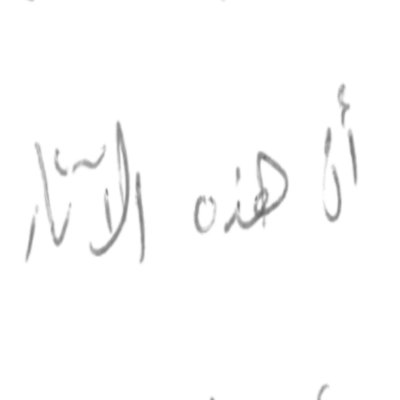 أن هذه الآثار